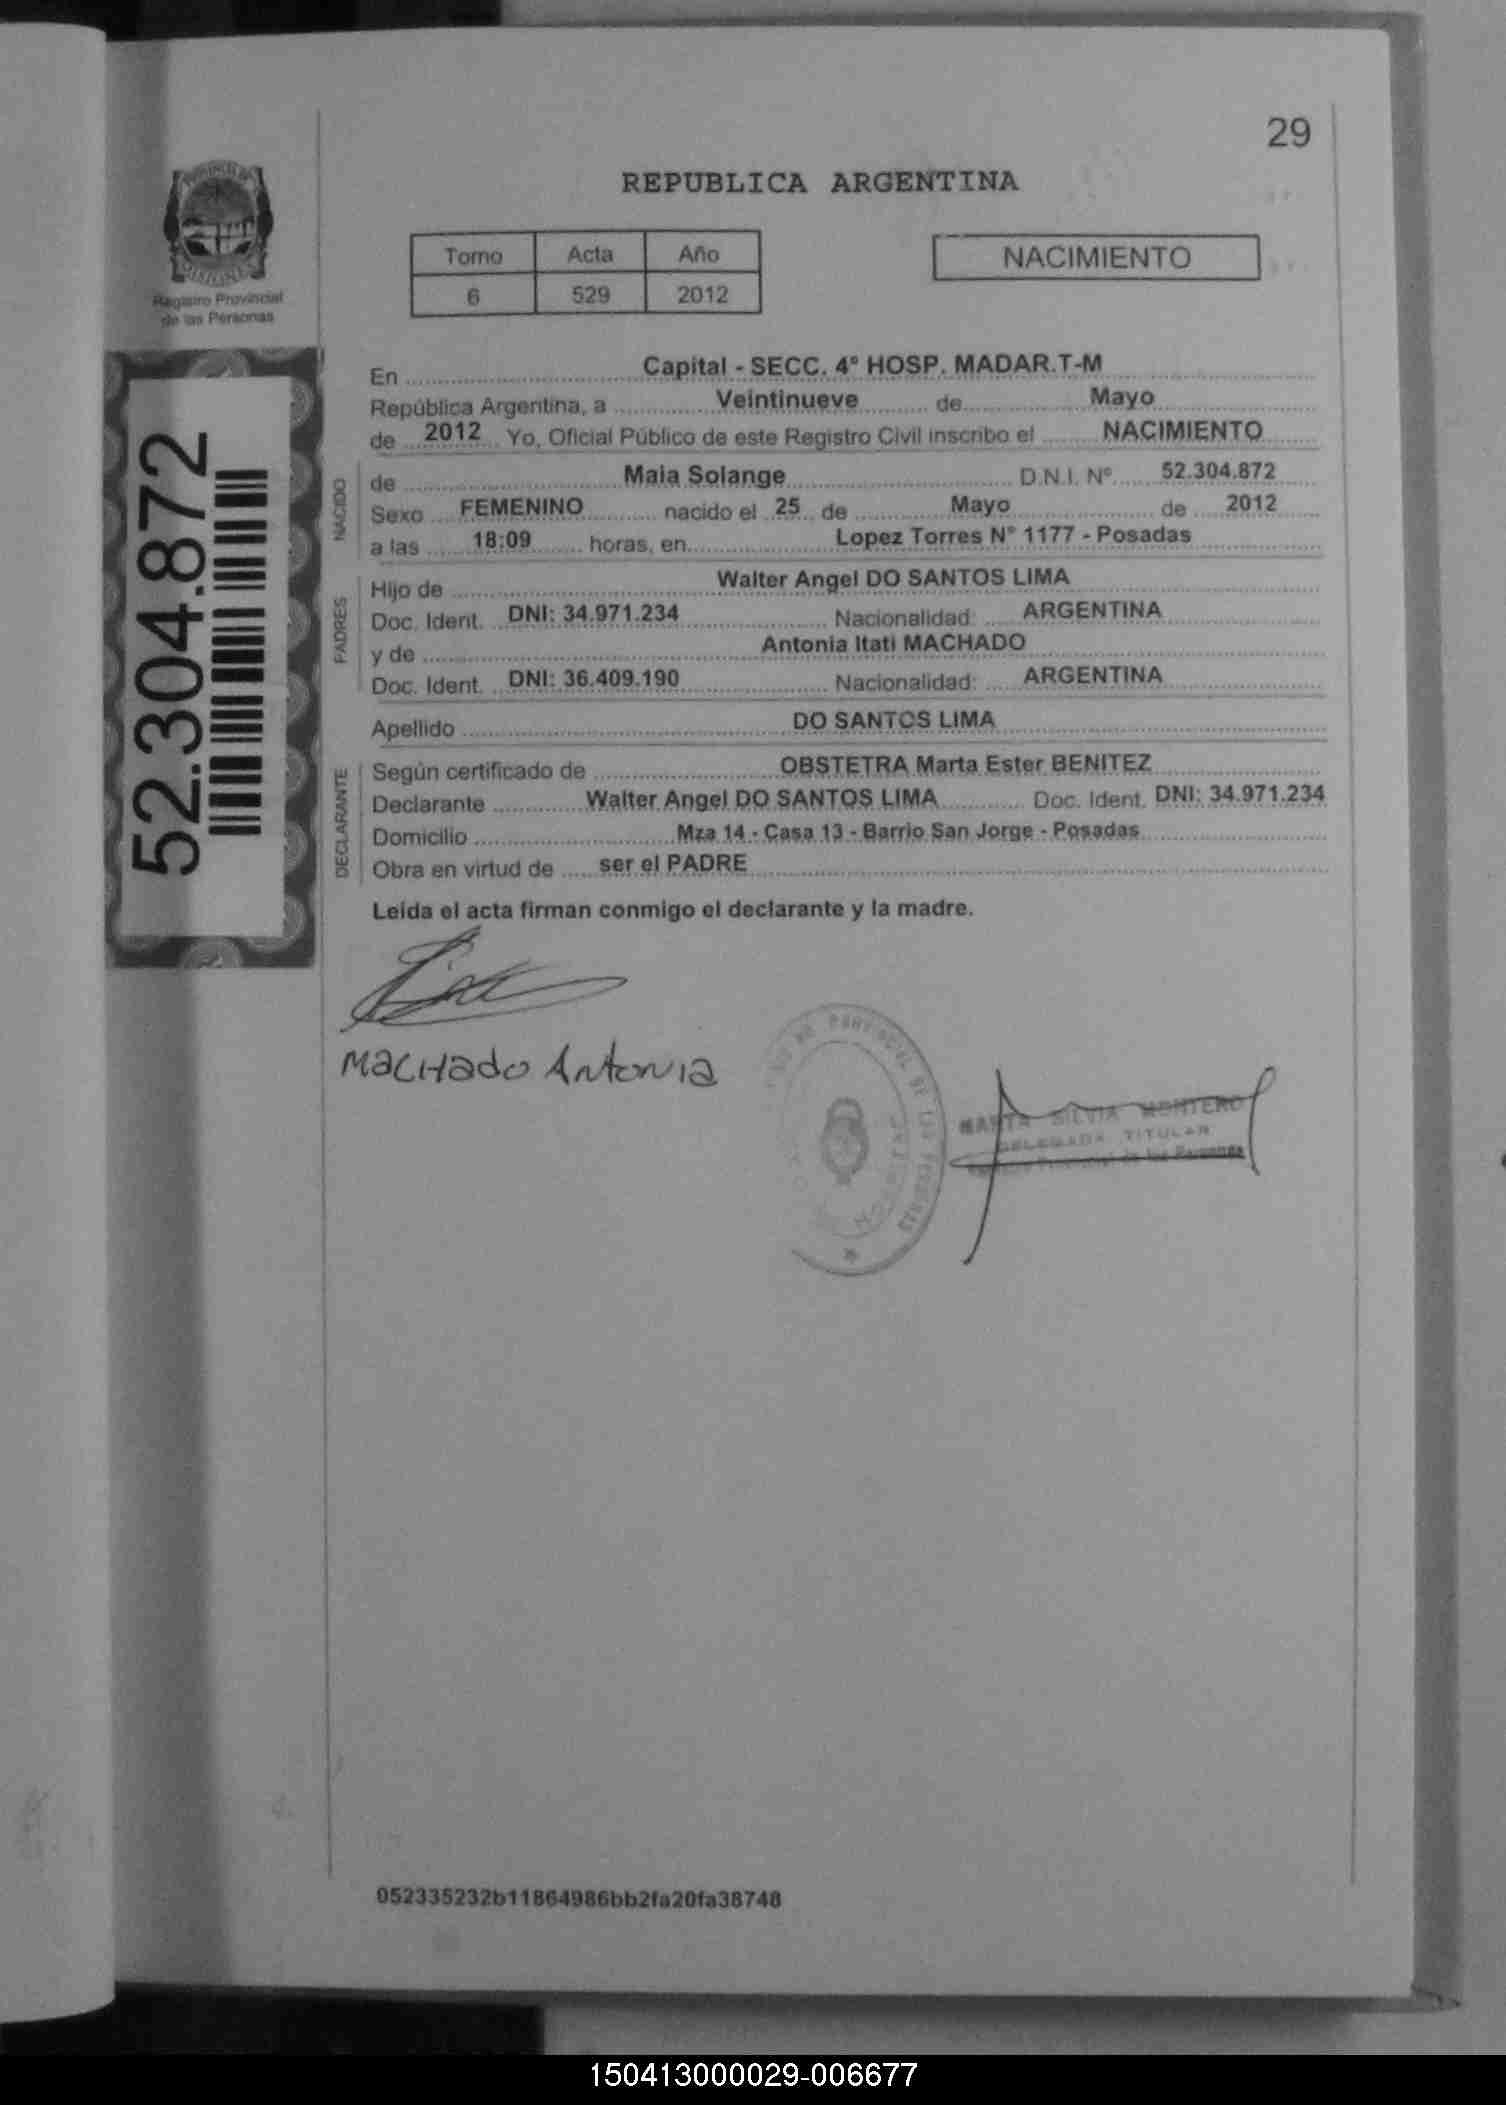 29
REPUBLICA ARGENTINA
Tomo Acta Año
6 529 2012
NACIMIENTO
Registro Provincial
de las Personas
52.304.872
En Capital - SECC. 4° HOSP. MADAR.T-M
República Argentina, a Veintinueve de Mayo
de 2012 Yo, Oficial Público de este Registro Civil inscribo el NACIMIENTO
NACIDO
de Maia Solange D.N.I. N° 52.304.872
Sexo FEMENINO nacido el 25 de Mayo de 2012
a las 18:09 horas, en Lopez Torres N° 1177 - Posadas
PADRES
Hijo de Walter Angel DO SANTOS LIMA
Doc. Ident. DNI: 34.971.234 Nacionalidad: ARGENTINA
y de Antonia Itati MACHADO
Doc. Ident. DNI: 36.409.190 Nacionalidad: ARGENTINA
Apellido DO SANTOS LIMA
DECLARANTE
Según certificado de OBSTETRA Marta Ester BENITEZ
Declarante Walter Angel DO SANTOS LIMA Doc. Ident. DNI: 34.971.234
Domicilio Mza 14 - Casa 13 - Barrio San Jorge - Posadas
Obra en virtud de ser el PADRE
Leída el acta firman conmigo el declarante y la madre.
MACHado Antonia
MARTA SILVIA MONTERO
DELEGADA TITULAR
Provincial de las Personas
052335232b11864986bb2fa20fa38748
150413000029-006677